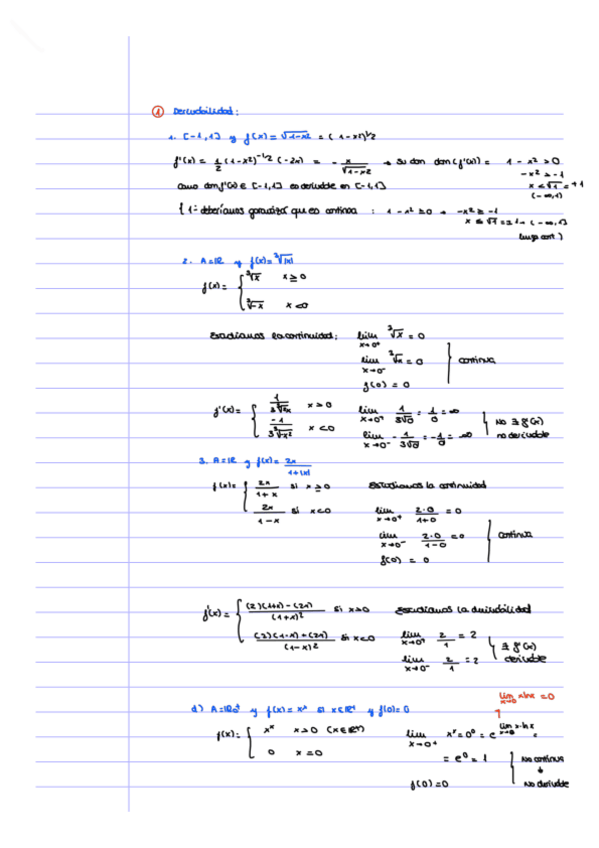 ① Derivabilidad:
1. [-1,1] y f(x) = √1-x² = (1-x²)^1/2
f'(x) = 1/2 (1-x²)^-1/2 (-2x) = - x/√1-x² → su dom dom(f'(x)) = 1-x² > 0
-x² > -1
x < √1 = +1
(-∞,1)
como dom f'(x) ∈ [-1,1] es derivable en [-1,1]
{ 1º deberíamos garantizar que es continua : 1-x² ≥ 0 → -x² ≥ -1
x ≤ √1 = 1 → (-∞,1]
luego cont.)
2. A=ℝ y f(x) = ³√|x|
f(x) = { ³√x x ≥ 0
³√-x x < 0
Estudiamos la continuidad: lim x→0⁺ ³√x = 0
lim x→0⁻ ³√-x = 0 continua
f(0) = 0
f'(x) = { 1/3³√x² x > 0 lim x→0⁺ 1/3√0 = 1/0 = ∞
-1/3³√x² x < 0 lim x→0⁻ -1/3√0 = -1/0 = -∞
No ∃ f'(x)
no derivable
3. A=ℝ y f(x) = 2x/1+|x|
f(x) = { 2x/1+x si x ≥ 0 Estudiamos la continuidad
2x/1-x si x < 0 lim x→0⁺ 2·0/1+0 = 0
lim x→0⁻ 2·0/1-0 = 0 continua
f(0) = 0
f'(x) = { (2)(1+x)-(2x)/(1+x)² si x>0 Estudiamos la derivabilidad
(2)(1-x)+(2x)/(1-x)² si x<0 lim x→0⁺ 2/1 = 2
lim x→0⁻ 2/1 = 2
∃ f'(x)
derivable
lim x→0 xlnx = 0
d) A=ℝ₀⁺ y f(x) = xˣ si x∈ℝ⁺ y f(0)=0
f(x) = { xˣ x>0 (x∈ℝ⁺) lim x→0⁺ xˣ = 0⁰ = e^lim x→0 x·ln x =
0 x=0 = e⁰ = 1
No continua
↓
No derivable
f(0)=0